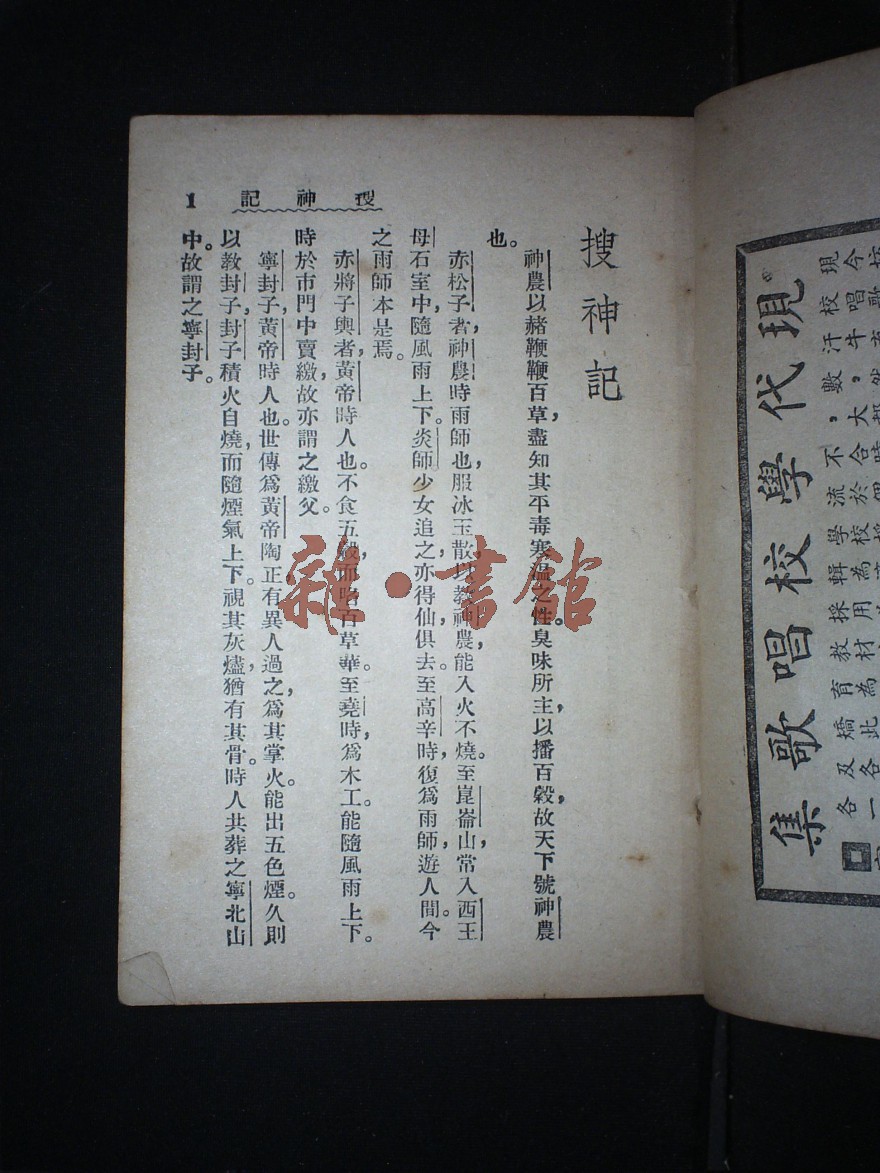 現代學校唱歌集
搜神記
神農以赭鞭鞭百草,盡知其平毒寒溫之性。臭味所主,以播百穀,故天下號神農
也。
赤松子者,神農時雨師也,服冰玉散,以教神農,能入火不燒。至崑崙山,常入西王
母石室中,隨風雨上下。炎師少女追之,亦得仙,俱去。至高辛時,復爲雨師,遊人間。今
之雨師本是焉。
赤將子輿者,黃帝時人也。不食五穀,而啗百草華。至堯時,爲木工。能隨風雨上下。
時於市門中賣繳,故亦謂之繳父。
寧封子,黃帝時人也。世傳爲黃帝陶正,有異人過之,爲其掌火。能出五色煙。久則
以教封子,封子積火自燒,而隨煙氣上下。視其灰燼,猶有其骨。時人共葬之寧北山
中。故謂之寧封子。
搜神記 1
雜·書館